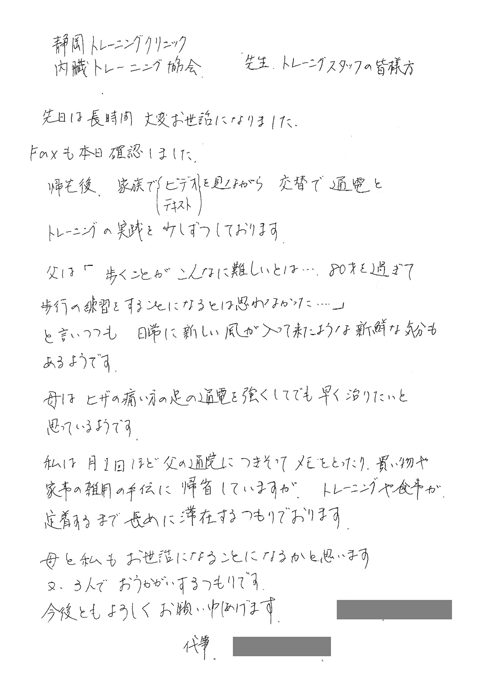 静岡トレーニングクリニック
内臓トレーニング協会 先生、トレーニングスタッフの皆様方
先日は長時間 大変お世話になりました。
Faxも本日確認しました。
帰宅後、家族で(ビデオ テキスト)を見ながら 交替で通電と
トレーニングの実践を少しずつしております。
父は「歩くことがこんなに難しいとは… 80才を過ぎて
歩行の練習をすることになるとは思わなかった……」
と言いつつも 日常に新しい風が入って来たような新鮮な気分も
あるようです。
母はヒザの痛い方の足の通電を強くしてでも早く治りたいと
思っているようです。
私は月1回ほど父の通院につきそってメモをとったり、買い物や
家事の雑用の手伝に帰省していますが、トレーニングや食事が
定着するまで長めに滞在するつもりでおります。
母と私もお世話になることになるかと思います
又、3人でおうかがいするつもりです。
今後ともよろしくお願い申しあげます。
代筆